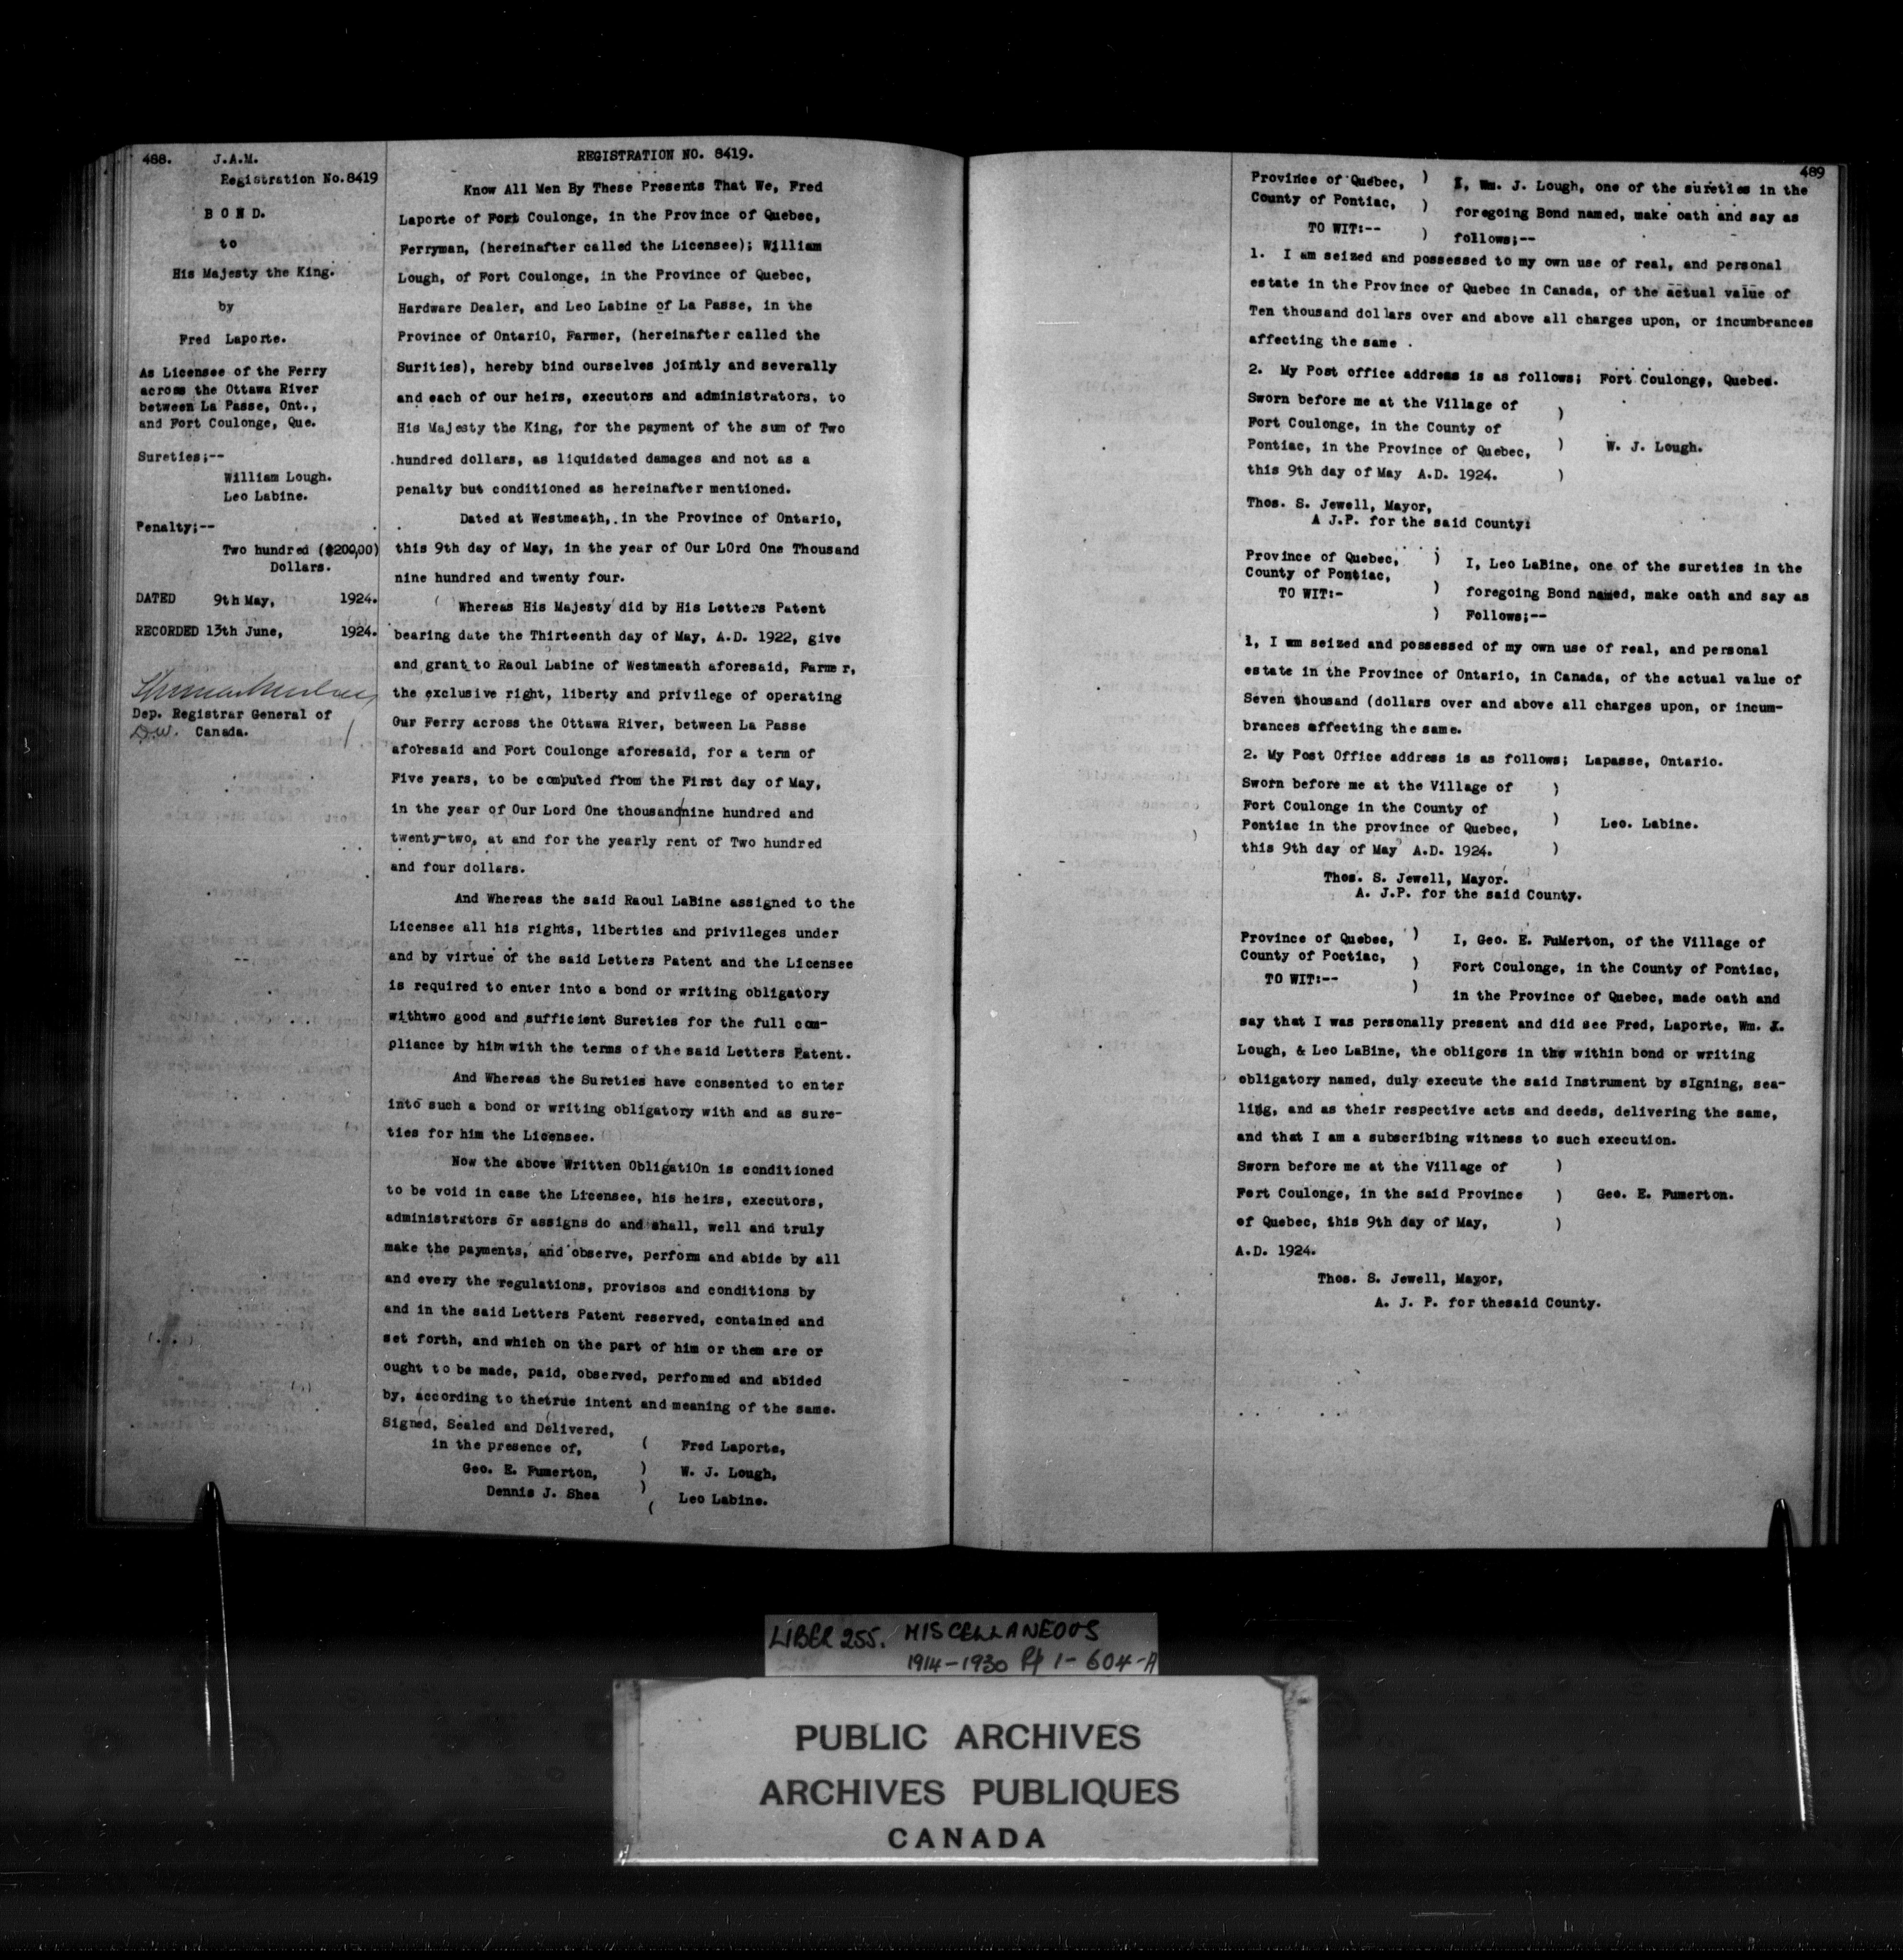 488.
J.A.M.
Registration No.8419
B O N D.
to
His Majesty the King.
by
Fred Laporte.
As Licensee of the Ferry
across the Ottawa River
between La Passe, Ont.,
and Fort Coulonge, Que.
Sureties;--
William Lough.
Leo Labine.
Penalty;--
Two hundred ($200,00)
Dollars.
DATED 9th May, 1924.
RECORDED 13th June, 1924.
Dep. Registrar General of
Canada.
REGISTRATION NO. 8419.
Know All Men By These Presents That We, Fred
Laporte of Fort Coulonge, in the Province of Quebec,
Ferryman, (hereinafter called the Licensee); William
Lough, of Fort Coulonge, in the Province of Quebec,
Hardware Dealer, and Leo Labine of La Passe, in the
Province of OntariO, Farmer, (hereinafter called the
Surities), hereby bind ourselves jointly and severally
and each of our heirs, executors and administrators, to
His Majesty the King, for the payment of the sum of Two
hundred dollars, as liquidated damages and not as a
penalty but conditioned as hereinafter mentioned.
Dated at Westmeath, in the Province of Ontario,
this 9th day of May, in the year of Our LOrd One Thousand
nine hundred and twenty four.
Whereas His Majesty did by His Letters Patent
bearing date the Thirteenth day of May, A.D. 1922, give
and grant to Raoul Labine of Westmeath aforesaid, Farmer,
the exclusive right, liberty and privilege of operating
Our Ferry across the Ottawa River, between La Passe
aforesaid and Fort Coulonge aforesaid, for a term of
Five years, to be computed from the First day of May,
in the year of Our Lord One thousand/nine hundred and
twenty-two, at and for the yearly rent of Two hundred
and four dollars.
And Whereas the said Raoul LaBine assigned to the
Licensee all his rights, liberties and privileges under
and by virtue of the said Letters Patent and the Licensee
is required to enter into a bond or writing obligatory
withtwo good and sufficient Sureties for the full com-
pliance by him with the terms of the said Letters Patent.
And Whereas the Sureties have consented to enter
into such a bond or writing obligatory with and as sure-
ties for him the Licensee.
Now the above Written ObligatiOn is conditioned
to be void in case the Licensee, his heirs, executors,
administrators or assigns do and shall, well and truly
make the payments, and observe, perform and abide by all
and every the regulations, provisos and conditions by
and in the said Letters Patent reserved, contained and
set forth, and which on the part of him or them are or
ought to be made, paid, observed, performed and abided
by, according to thetrue intent and meaning of the same.
Signed, Sealed and Delivered,
in the presence of, ( Fred Laporte,
Geo. E. Fumerton, ) W. J. Lough,
Dennis J. Shea ) ( Leo Labine.
489
Province of Quebec, ) I, Wm. J. Lough, one of the sureties in the
County of Pontiac, ) foregoing Bond named, make oath and say as
TO WIT:-- ) follows;--
1. I am seized and possessed to my own use of real, and personal
estate in the Province of Quebec in Canada, of the actual value of
Ten thousand dollars over and above all charges upon, or incumbrances
affecting the same .
2. My Post office address is as follows; Fort Coulonge, Quebec.
Sworn before me at the Village of )
Fort Coulonge, in the County of
Pontiac, in the Province of Quebec, ) W. J. Lough.
this 9th day of May A.D. 1924. )
Thos. S. Jewell, Mayor,
A J.P. for the said County:
Province of Quebec, ) I, Leo LaBine, one of the sureties in the
County of Pontiac, ) foregoing Bond named, make oath and say as
TO WIT:- ) Follows;--
1, I am seized and possessed of my own use of real, and personal
estate in the Province of Ontario, in Canada, of the actual value of
Seven thousand (dollars over and above all charges upon, or incum-
brances affecting the same.
2. My Post Office address is as follows; Lapasse, Ontario.
Sworn before me at the Village of )
Fort Coulonge in the County of
Pontiac in the province of Quebec, ) Leo. Labine.
this 9th day of May A.D. 1924. )
Thos. S. Jewell, Mayor.
A. J.P. for the said County.
Province of Quebec, ) I, Geo. E. FuMerton, of the Village of
County of Poctiac, ) Fort Coulonge, in the County of Pontiac,
TO WIT:-- ) in the Province of Quebec, made oath and
say that I was personally present and did see Fred, Laporte, Wm. J.
Lough, & Leo LaBine, the obligors in the within bond or writing
obligatory named, duly execute the said Instrument by sIgning, sea-
ling, and as their respective acts and deeds, delivering the same,
and that I am a subscribing witness to such execution.
Sworn before me at the Village of )
Fort Coulonge, in the said Province ) Geo. E. Fumerton.
of Quebec, this 9th day of May, )
A.D. 1924.
Thos. S. Jewell, Mayor,
A. J. P. for thesaid County.
LIBER 255. MISCELLANEOUS
1914-1930 Pt 1-604-A
PUBLIC ARCHIVES
ARCHIVES PUBLIQUES
CANADA